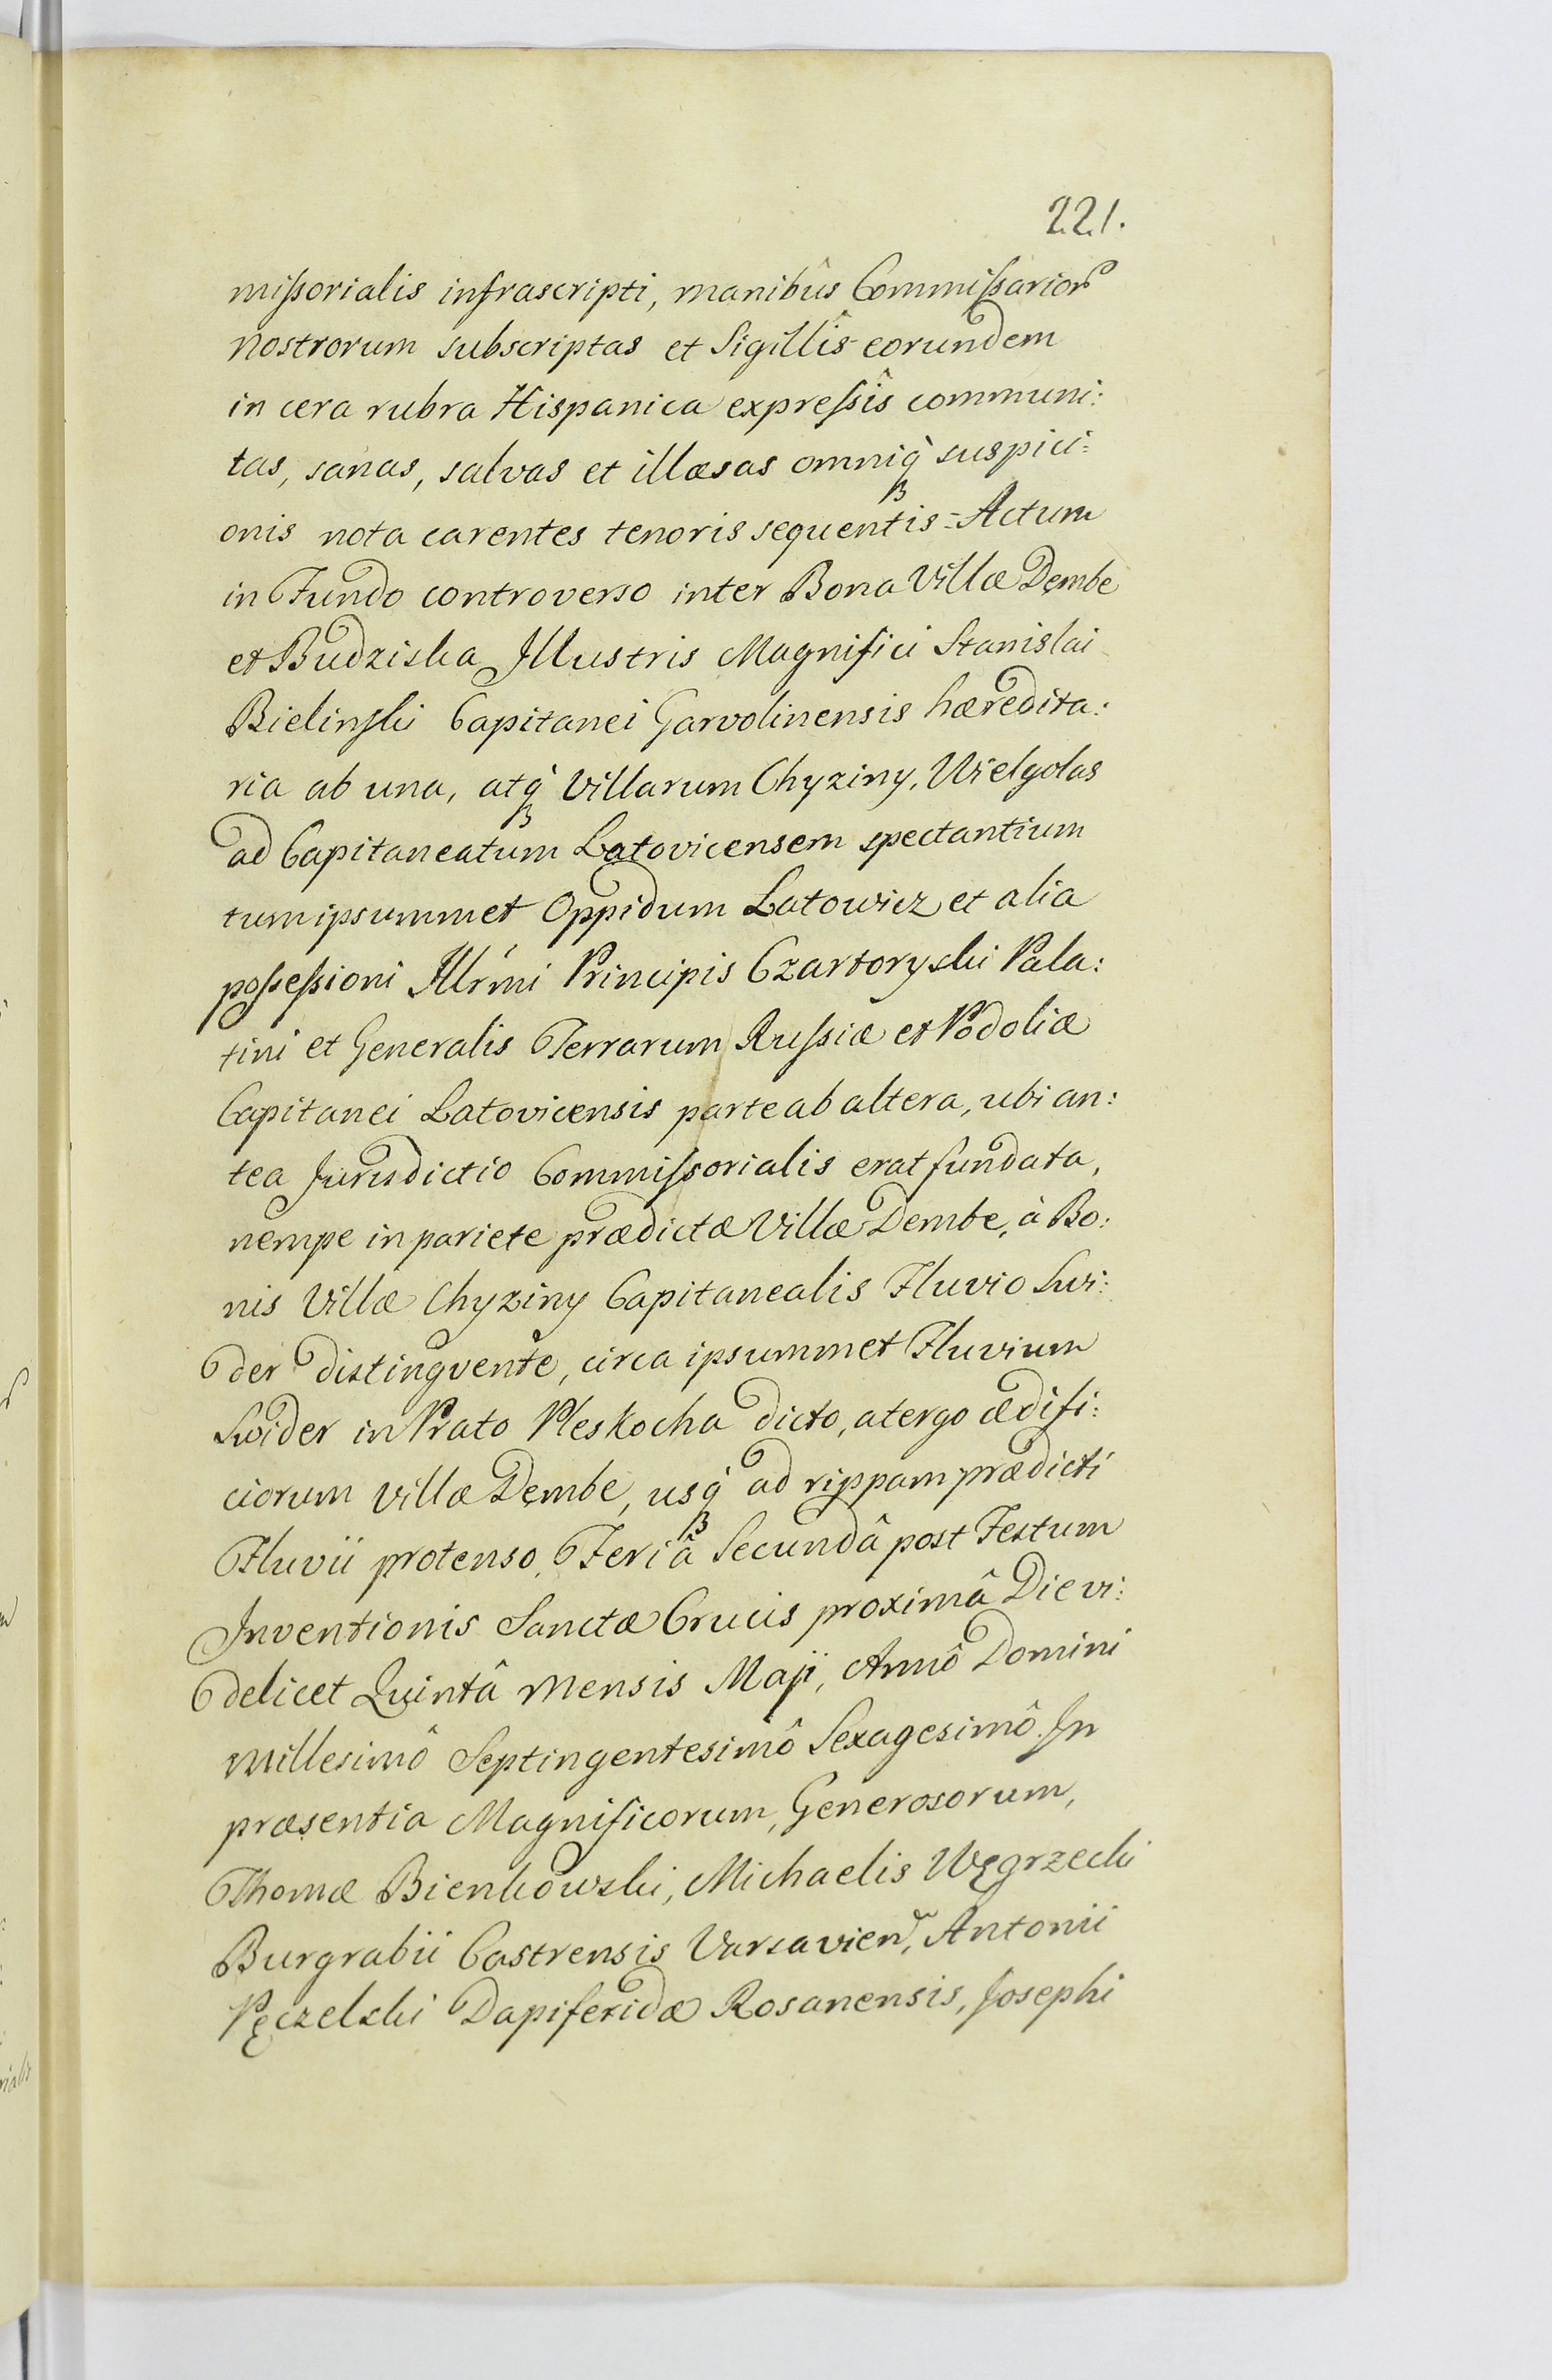 221.
mißorialis infrascripti, manibûs Commißarior
nostrorum subscriptas et Sigillîs eorundem
in cera rubra Hispanica expreßîs communi:
tas, sanas, salvas et illæsas omniq̀ suspici:
onis nota carentes tenoris sequentis = Actum
in Fundo controverso inter Bona Villæ Dembe
et Budziska Illustris Magnifici Stanislai
Bielinski Capitanei Garvolinensis hæredita:
ria ab una, atq̀ Villarum Chyziny, Wielgolas
ad Capitaneatum Latovicensem spectantium
tum ipsummet Oppidum Latowicz et alia
poßeßioni Illr̃mi Principis Czartoryski Pala:
tini et Generalis Terrarum Rußiæ et Podoliæ
Capitanei Latovicensis parte ab altera, ubi an:
tea Jurisdictio Commißorialis erat fundata,
nempe in pariete prædictæ Villæ Dembe, à Bo:
nis Villæ Chyziny Capitanealis Fluvio Swi:
der distingvente, circa ipsummet Fluvium
Swider in Prato Pleskocha dicto, atergo ædifi:
ciorum Villæ Dęmbe, usq̀ ad rippam prædicti
Fluvii protenso. Feriâ Secundâ post Festum
Inventionis Sanctæ Crucis proximâ Die vi:
delicet Quintâ Mensis Maji, Annô Domini
Millesimô Septingentesimô Sexagesimô. In
præsentia Magnificorum, Generosorum,
Thomæ Bienkowski, Michaelis Węgrzecki
Burgrabii Castrensis Varsavien̄, Antonii
Pęczelski Dapiferidæ Rosanensis, Josephi